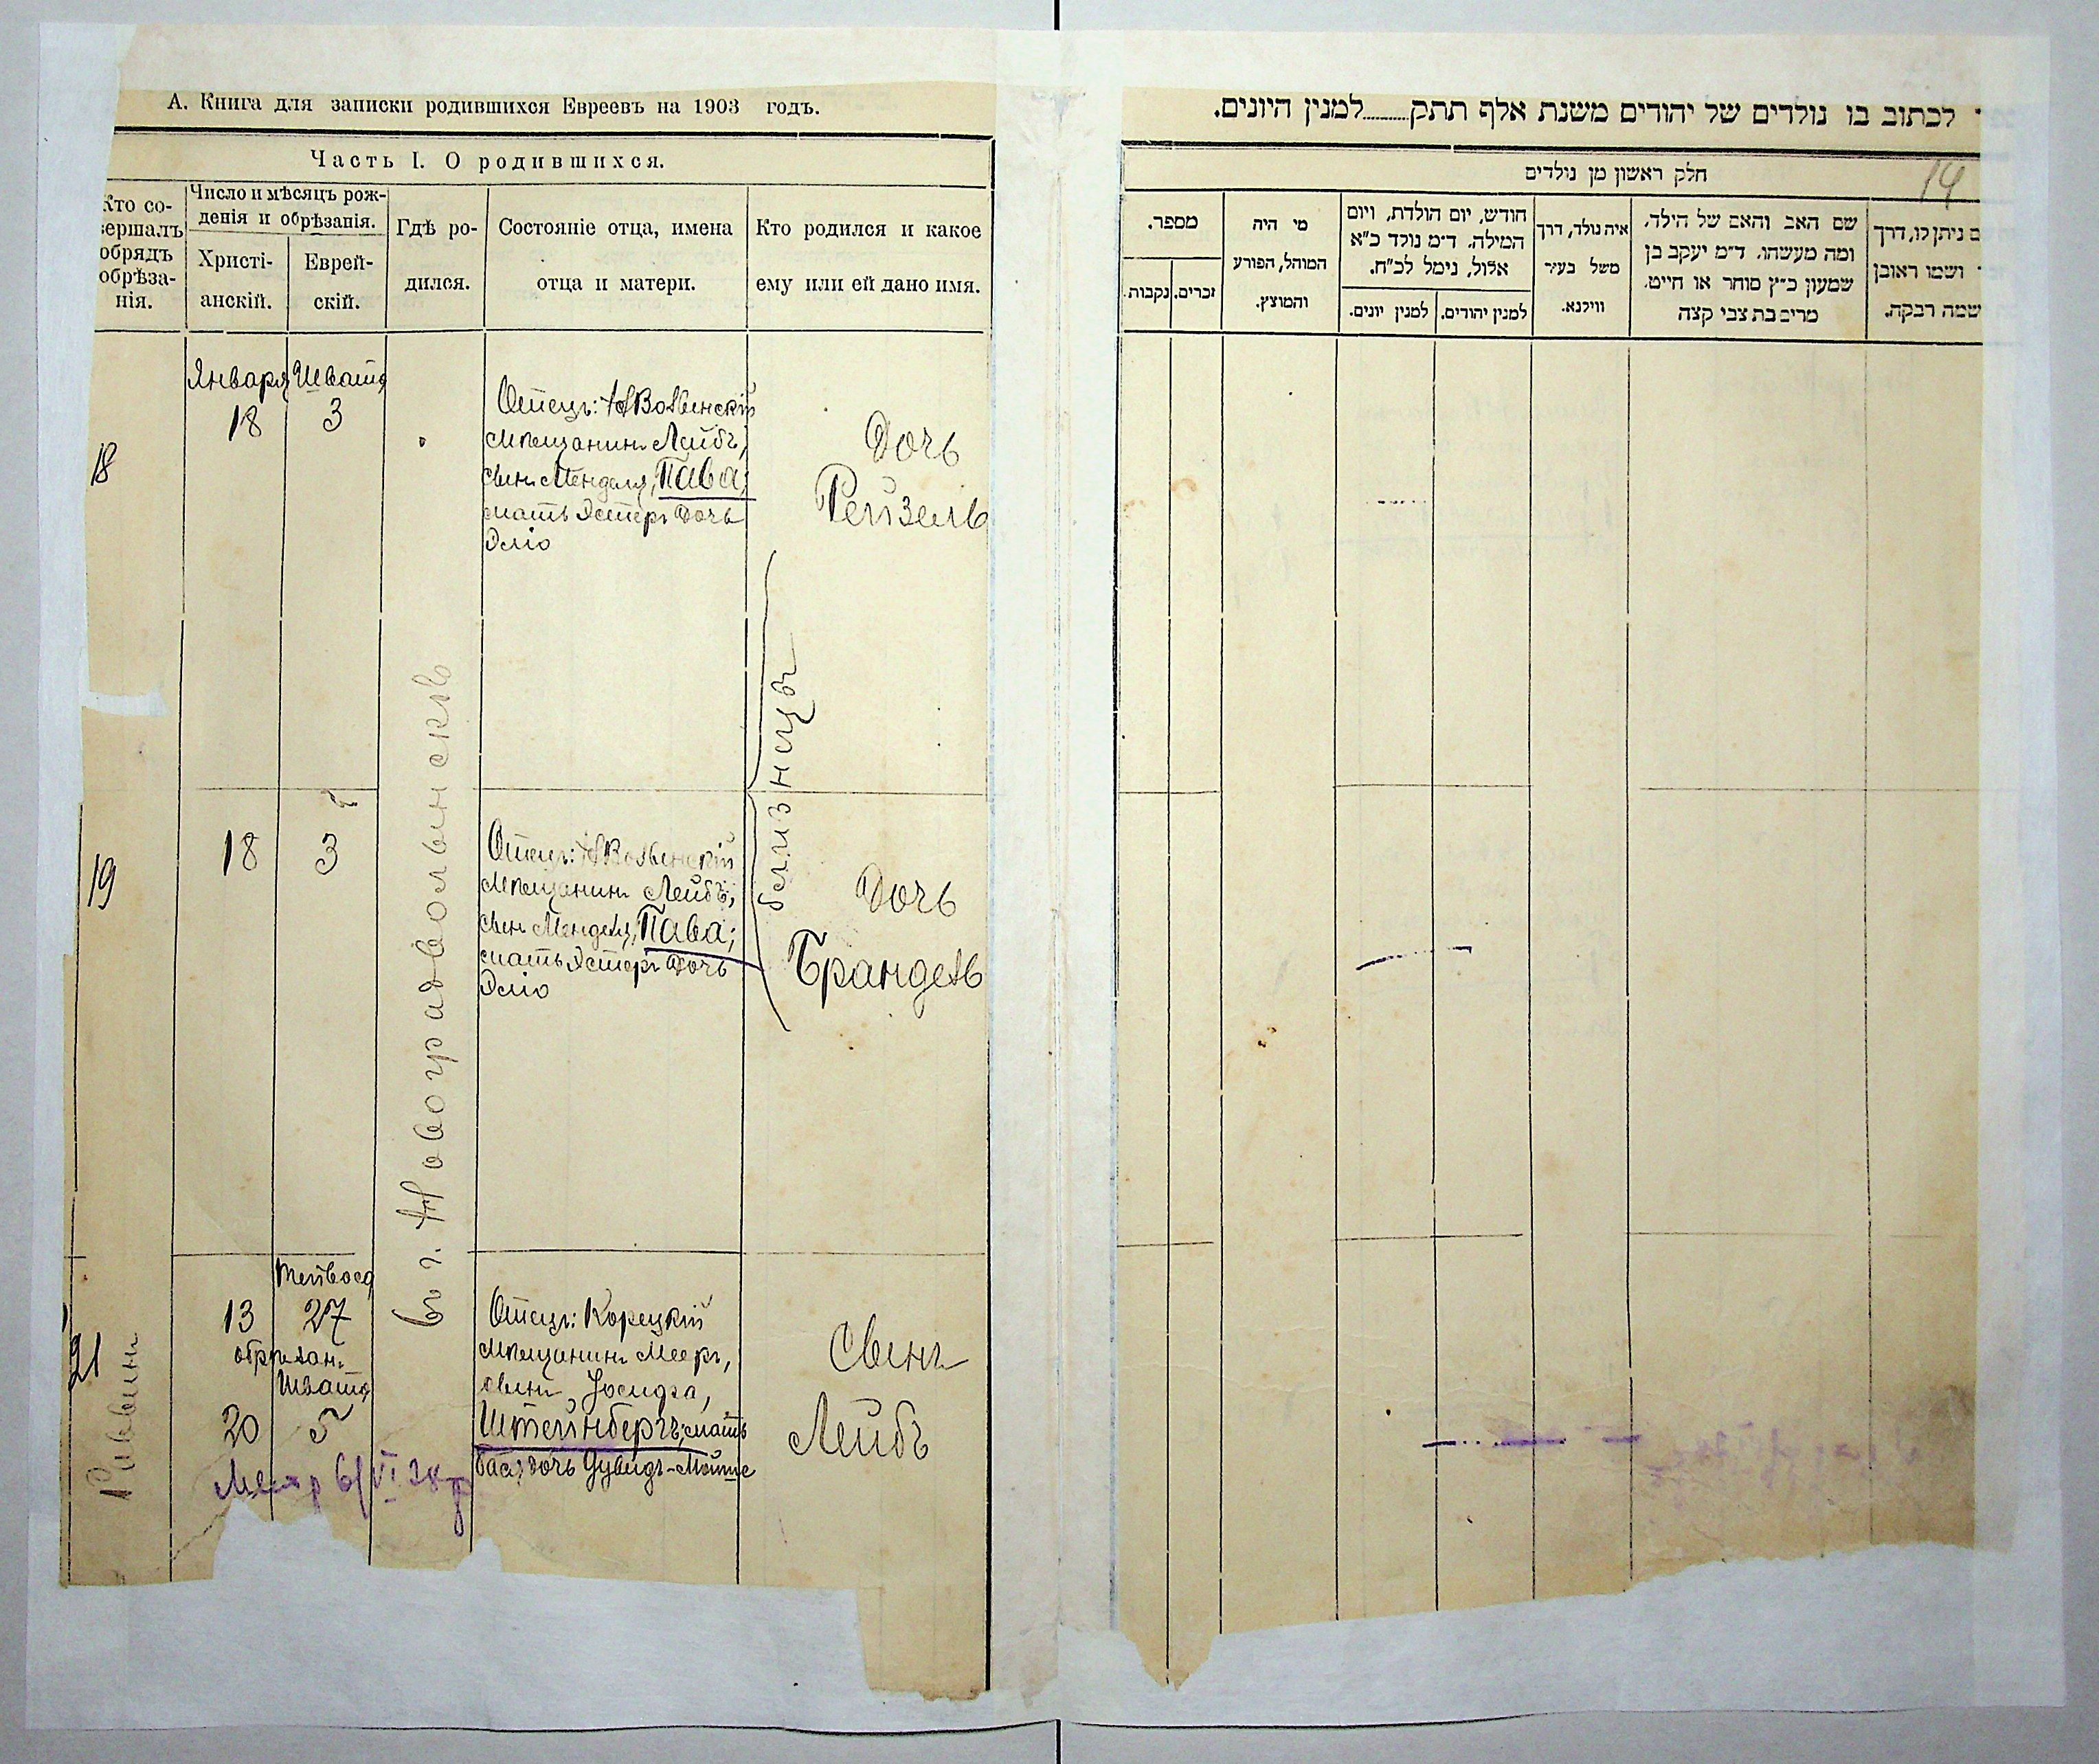 А. Книга для записки родившихся Евреевъ на 1903 годъ.
Часть I. О родившихся.
Кто со-
вершалъ
обрядъ
обрѣза-
нія.
Число и мѣсяцъ рож-
денія и обрѣзанія.
Христі-
анскій.
Еврей-
скій.
Гдѣ ро-
дился.
Состояніе отца, имена
отца и матери.
Кто родился и какое
ему или ей дано имя.
18
Января
18
Швата
3
въ г. Новоградволынскѣ
Отецъ: НВолынскій
мѣщанинъ Лейбъ,
сынъ Менделя, Пава;
мать Эстеръ дочь
Эліо
Дочь
Рейзель
близнецы
19
18
3
Отецъ: НВолынскій
мѣщанинъ Лейбъ,
сынъ Менделя, Пава;
мать Эстеръ дочь
Эліо
Дочь
Брандель
21
Раввинъ
13
Тейвоса
27
обрѣзан.
Швата
20
5
Отецъ: Корецкій
мѣщанинъ Мееръ,
сынъ Іосифа,
Штейнбергъ; мать
Бася, дочь Дувидъ-Мойше
Сынъ
Лейбъ
לכתוב בו נולדים של יהודים משנת אלף תתק........למנין היונים.
14
חלק ראשון מן נולדים
מספר.
זכרים.
נקבות.
מי היה
המוהל, הפורע
והמוצץ.
חודש, יום הולדת, ויום
המילה. ד״מ נולד כ״א
אלול, נימל לכ״ח.
למנין יהודים.
למנין יונים.
איה נולד, דרך
משל בעיר
ווילנא.
שם האב והאם של הילד,
ומה מעשהו. ד״מ יעקב בן
שמעון כ״ץ סוחר או חייט,
מרים בת צבי קצה
ניתן לו, דרך
ושמו ראובן
שמה רבקה.